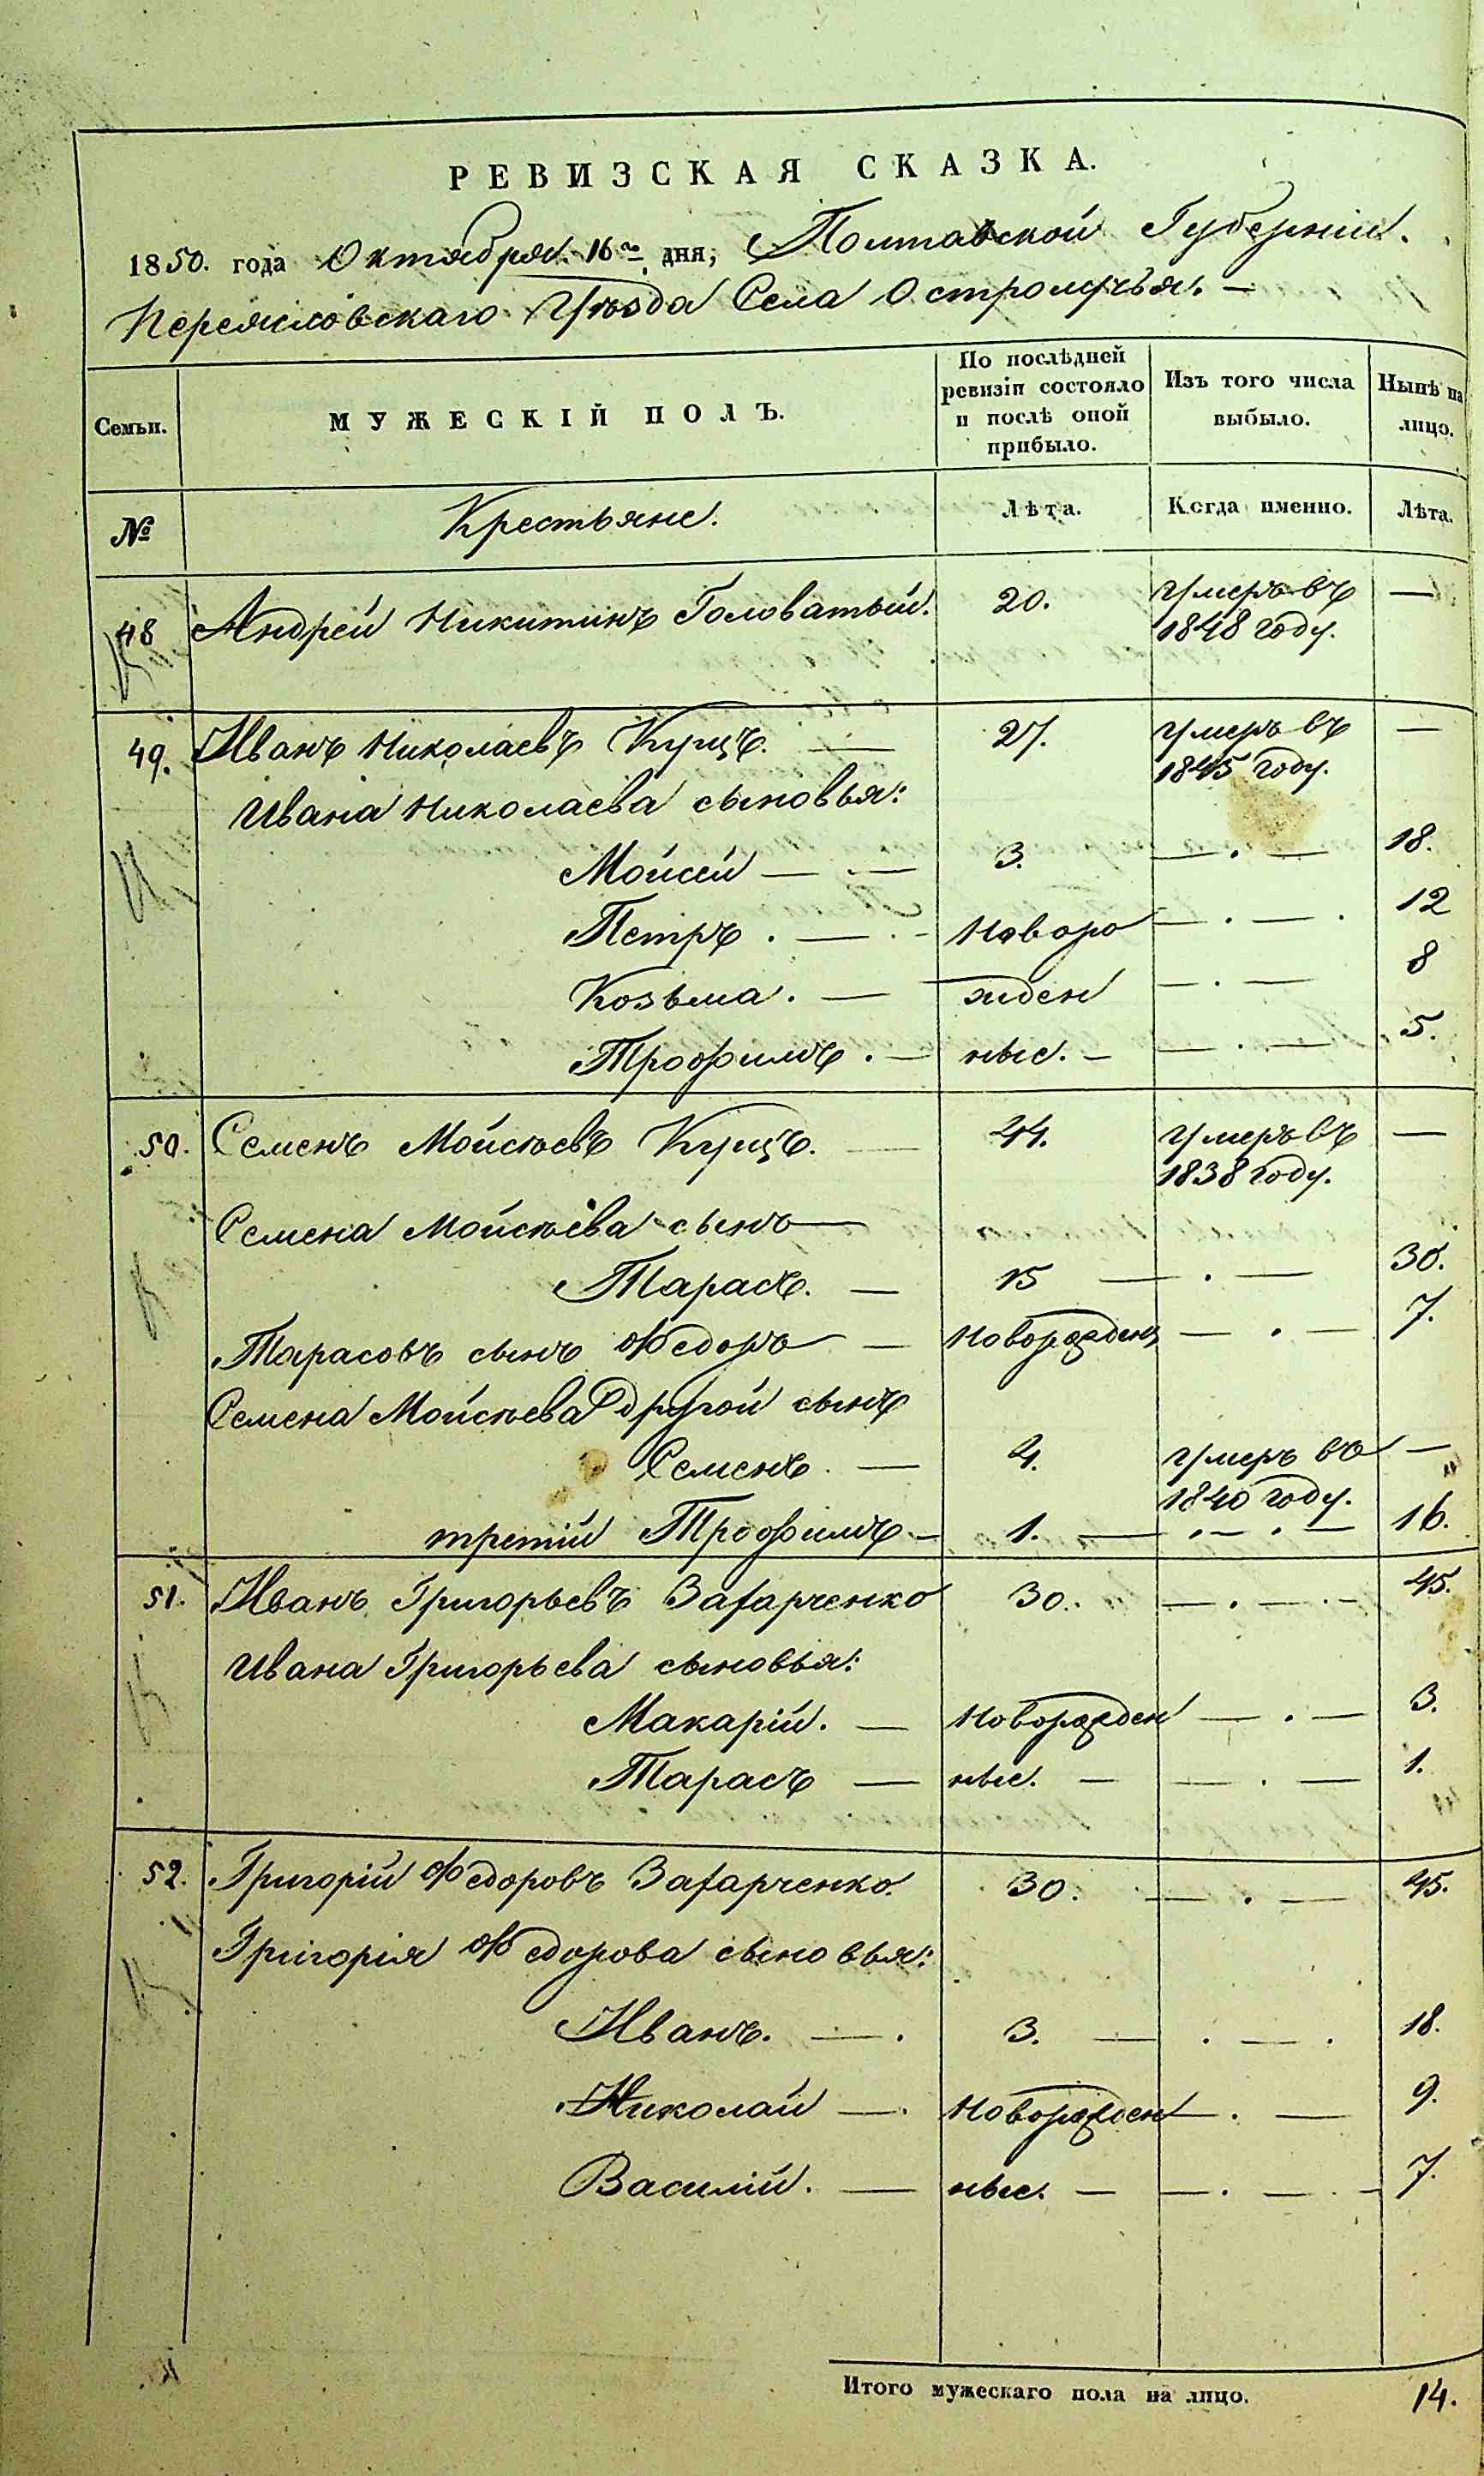 РЕВИЗСКАЯ СКАЗКА.
1850. года Октября 16го дня, Полтавской Губерніи.
Переяславскаго Уѣзда Села Остролучья. —
Семьи. МУЖЕСКІЙ ПОЛЪ. По послѣдней ревизіи состояло и послѣ оной прибыло. Изъ того числа выбыло. Нынѣ на лицо.
№ Крестьяне. Лѣта. Когда именно. Лѣта.
48 Андрей Никитинъ Головатый. 20. умеръ въ —
1848 году.
49. Иванъ Николаевъ Куцъ. — 27. умеръ въ —
1845 году.
Ивана Николаева сыновья:
Мойсей — — 3. — . — 18.
Петръ . — . - Новоро — . — . 12
Козьма . — жден — . — 8
Трофимъ . — ные. - — . — 5.
50. Семенъ Мойсѣевъ Куцъ. — 44. умеръ въ —
1838 году.
Семена Мойсѣева сынъ
Тарасъ. — 15 — . — 30.
Тарасовъ сынъ Федоръ — Новорожден — . — 7.
Семена Мойсѣева другой сынъ
Семенъ. — 4. умеръ въ —
1840 году.
третій Трофимъ - 1. — . — . — 16.
51. Иванъ Григорьевъ Захарченко 30. — . — . - 45.
Ивана Григорьева сыновья:
Макарій. — Новорожден — . — 3.
Тарасъ — ные. — — . — 1.
52. Григорій Федоровъ Захарченко. 30. — . — 45.
Григорія Федорова сыновья:
Иванъ. — . 3. — . — . 18.
Николай — . Новорожден — . — 9.
Василій. — ные. — — . — . - 7.
Итого мужескаго пола на лицо. 14.